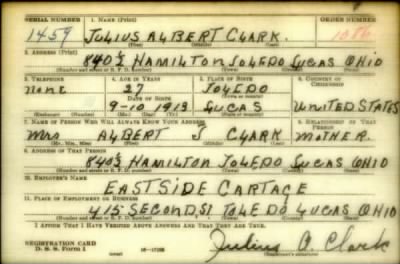 SERIAL NUMBER 1. NAME (Print) ORDER NUMBER
1459 JULIUS ALBERT CLARK.
(First) (Middle) (Last)
2. ADDRESS (Print)
840½ HAMILTON TOLEDO LUCAS OHIO
(Number and street or R. F. D. number) (Town) (County) (State)
3. TELEPHONE 4. AGE IN YEARS 5. PLACE OF BIRTH 6. COUNTRY OF CITIZENSHIP
NONE 27 TOLEDO
DATE OF BIRTH (Town or county)
9-10-1913 LUCAS UNITED STATES
(Exchange) (Number) (Mo.) (Day) (Yr.) (State or country)
7. NAME OF PERSON WHO WILL ALWAYS KNOW YOUR ADDRESS 8. RELATIONSHIP OF THAT PERSON
MRS ALBERT J CLARK MOTHER.
(Mr., Mrs., Miss) (First) (Middle) (Last)
9. ADDRESS OF THAT PERSON
840½ HAMILTON TOLEDO LUCAS OHIO
(Number and street or R. F. D. number) (Town) (County) (State)
10. EMPLOYER'S NAME
EASTSIDE CARTAGE
11. PLACE OF EMPLOYMENT OR BUSINESS
415 SECOND ST TOLEDO LUCAS OHIO
(Number and street or R. F. D. number) (Town) (County) (State)
I AFFIRM THAT I HAVE VERIFIED ABOVE ANSWERS AND THAT THEY ARE TRUE.
REGISTRATION CARD
D. S. S. Form 1 Julius A. Clark
(Registrant's signature)